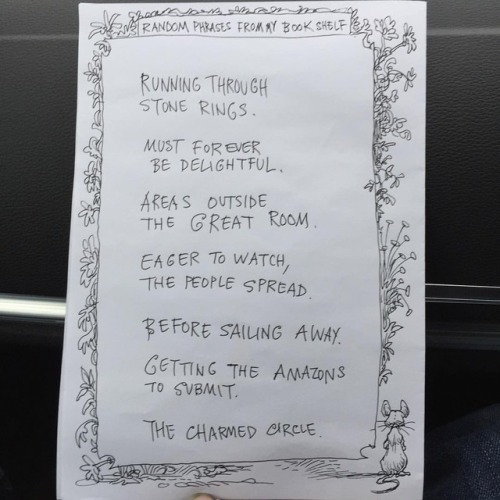 RANDOM PHRASES FROM MY BOOK SHELF
RUNNING THROUGH
STONE RINGS.
MUST FOREVER
BE DELIGHTFUL.
AREAS OUTSIDE
THE GREAT ROOM.
EAGER TO WATCH,
THE PEOPLE SPREAD.
BEFORE SAILING AWAY.
GETTING THE AMAZONS
TO SUBMIT.
THE CHARMED CIRCLE.